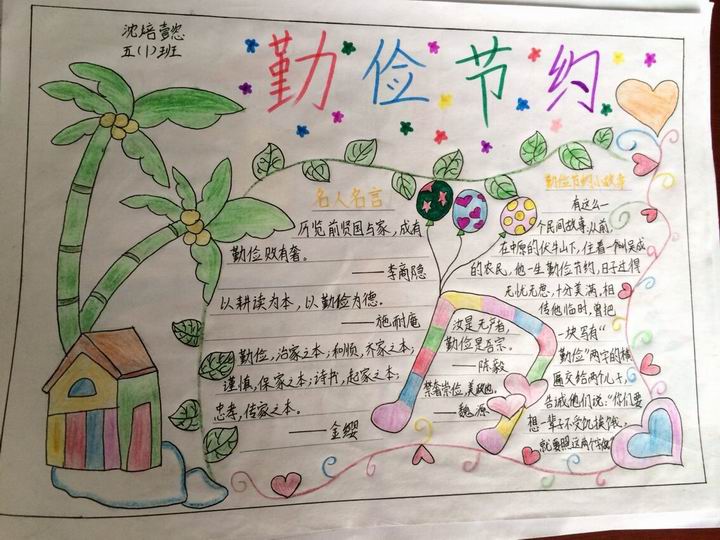 沈焙懿
五(1)班
勤俭节约
名人名言
历览前贤国与家,成有
勤俭败有奢。
——李商隐
以耕读为本,以勤俭为德。
——施耐庵
勤俭,治家之本;和顺,齐家之本;
谨慎,保家之本;诗书,起家之本;
忠孝,传家之本。
——金缨
汝是无产者,
勤俭是吾宗。
——陈毅
禁奢崇俭,美政也。
——魏源
勤俭节约小故事
有这么一
个民间故事:从前
在中原的伏牛山下,住着一个叫吴成
的农民,他一生勤俭节约,日子过得
无忧无虑,十分美满,相
传他临时,曾把
一块写有"
勤俭"两字的横
匾交给两个儿子,
告诫他们说:"你们要
想一辈子不受饥挨饿,
就要照这两个字做